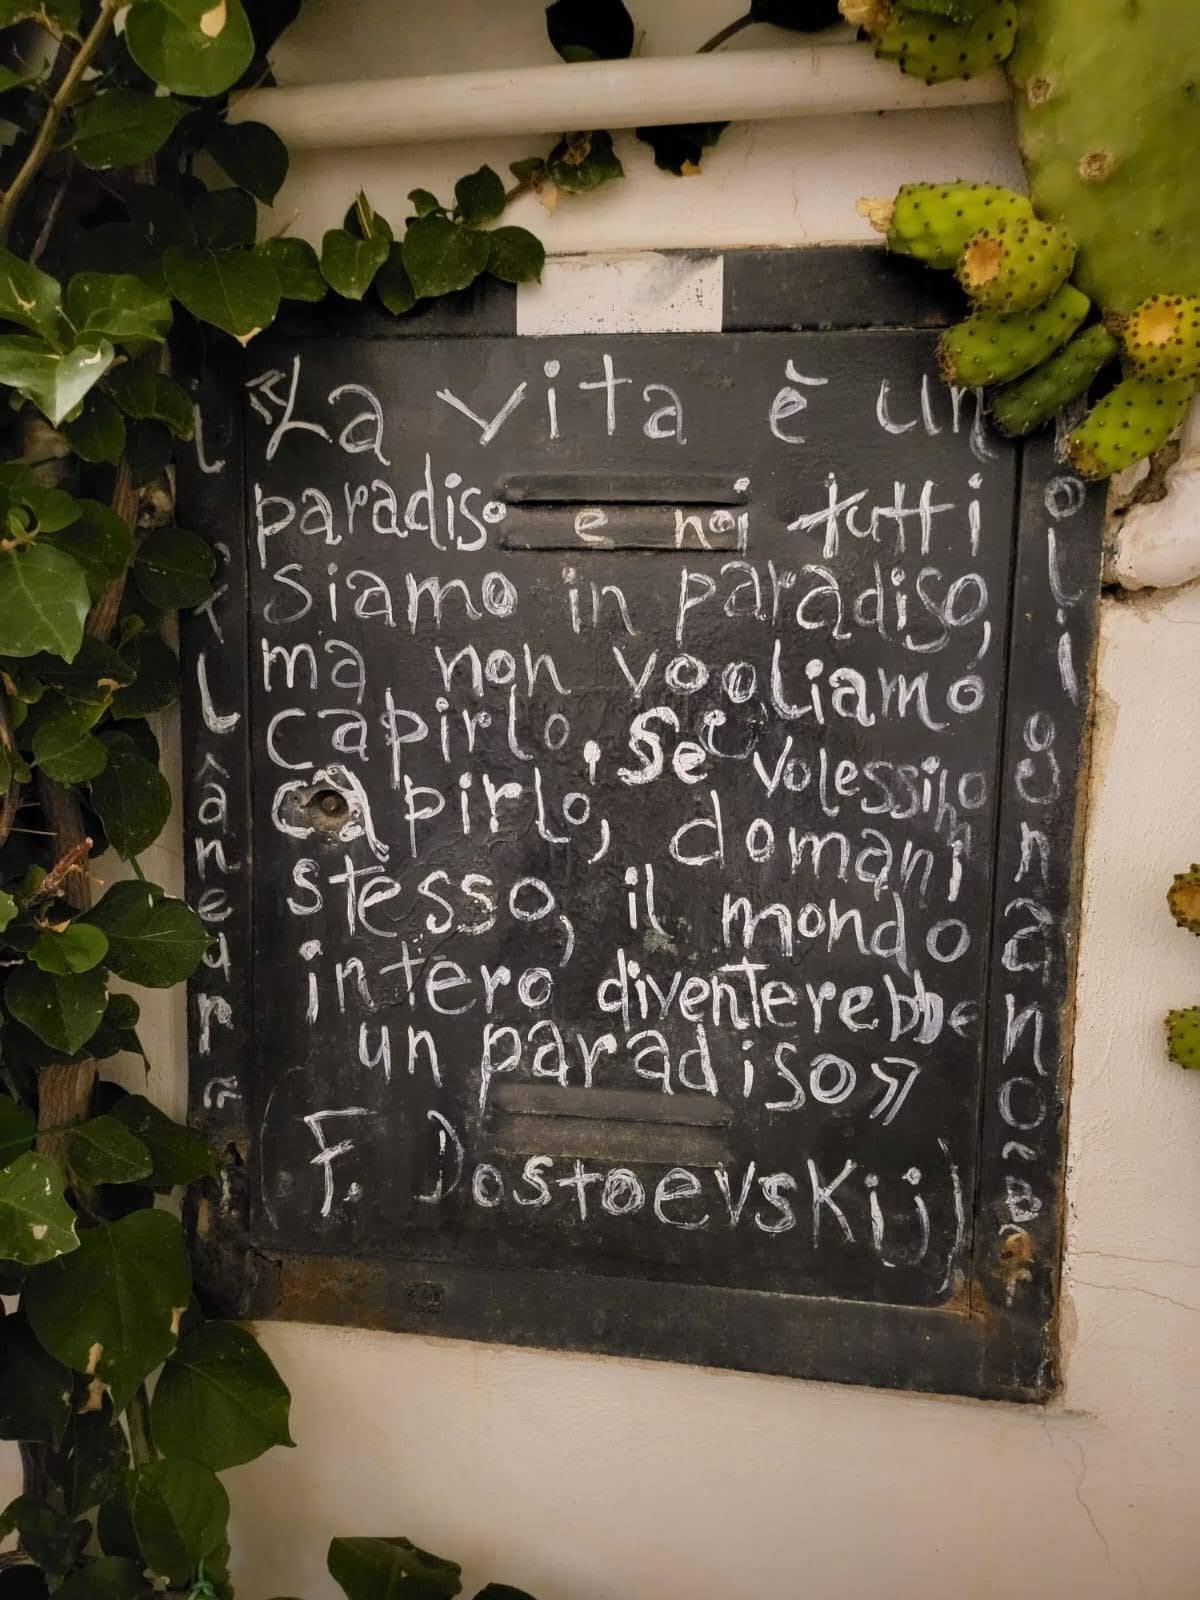 «La vita è un
paradiso e noi tutti
siamo in paradiso,
ma non vogliamo
capirlo, se volessimo
capirlo, domani
stesso, il mondo
intero diventerebbe
un paradiso»
(F. Dostoevskij)